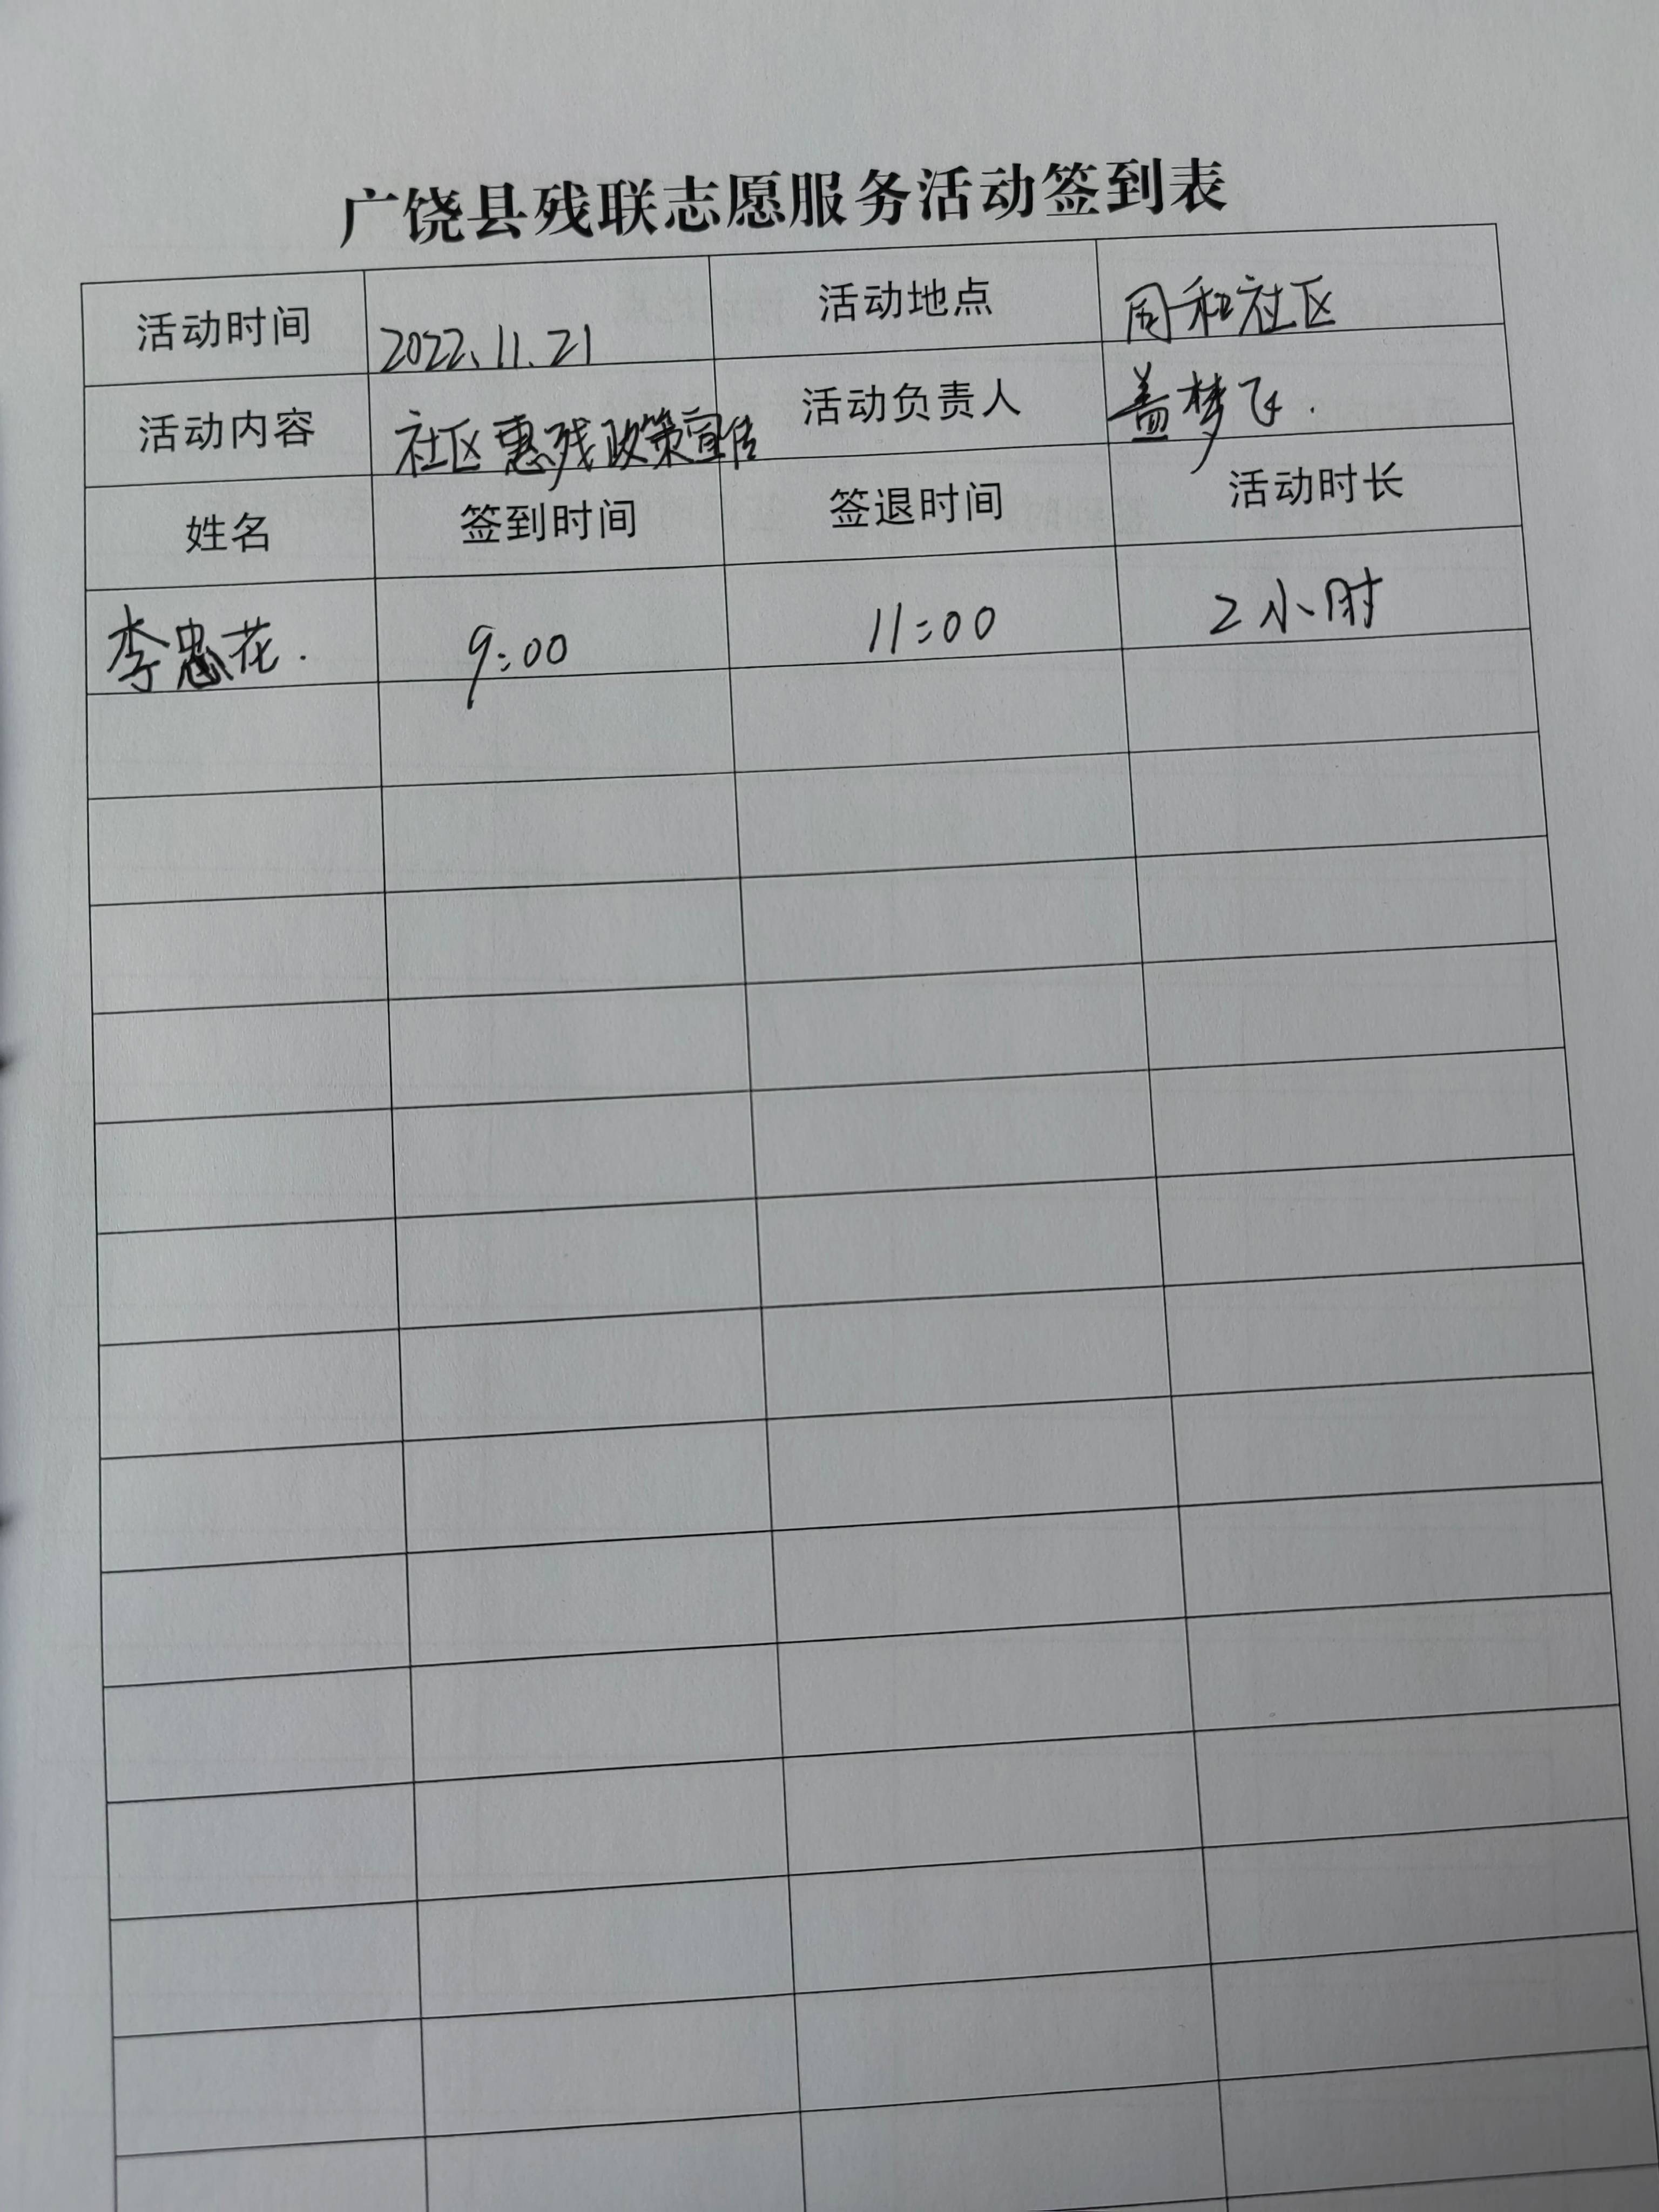 广饶县残联志愿服务活动签到表
活动时间 2022.11.21 活动地点 同和社区
活动内容 社区惠残政策宣传 活动负责人 盖梦飞.
姓名 签到时间 签退时间 活动时长
李忠花. 9:00 11:00 2小时